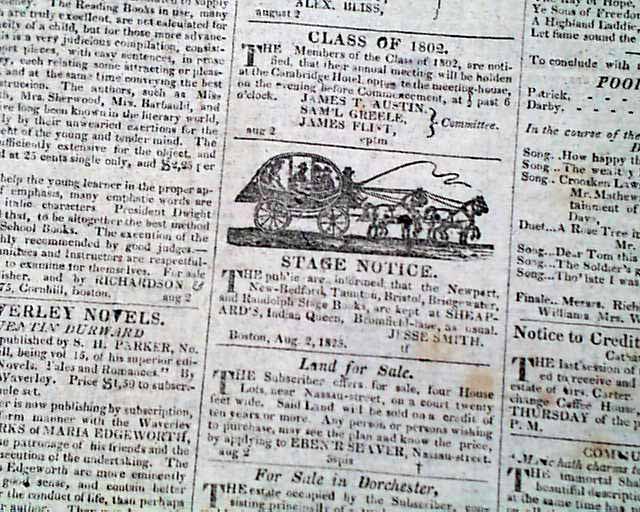 The Reading Books in use, many
are truly excellent, are not calculated for
city of a child, but for those more advanc-
is a very judicious compilation, consist-
pieces, in easy sentences, in prose
y, each relating some interesting or pleas-
and at the same time conveying the best
struction. The authors, such as Miss
Mrs. Sherwood, Mrs. Barbauld, and
are long been known in the literary world,
ly by their unwearied exertions for the
ent of the young and tender mind. The
ufficiently extensive for the object, and
at 25 cents single only, and $2,25 per
help the young learner in the proper ap-
f emphasis, many emphatic words are
italic characters President Dwight
that, to be altogether the best method
School Books. The execution of the
hly recommended by good judges.—
mittees and Instructors are respectful-
to examine for themselves. For sale
isher, and by RICHARDSON &
75, Cornhill, Boston. aug 2
VERLEY NOVELS.
UENTIN DURWARD
published by S. H. PARKER, No.
ill, being vol 15, of his superior edi-
Novels, Tales and Romances" By
Waverley. Price $1,50 to subscr-
le set.
er is now publishing by subscription,
form manner with the Waverley
RKS of MARIA EDGEWORTH,
he patronage of his friends and the
secution of the undertaking. The
Edgeworth are more eminently
good sense, and contain better
the conduct of life, than perhaps
ALEX. BLISS,
august 2
CLASS OF 1802.
THE Members of the Class of 1802, are noti-
fied, that their annual meeting will be holden
at the Cambridge Hotel, opposite to the meeting-house,
on the evening before Commencement, at ½ past 6
o'clock. JAMES T. AUSTIN,
SAM'L GREELE, } Committee.
JAMES FLINT,
aug 2 eptm
STAGE NOTICE.
THE public are informed that the Newport,
New-Bedford, Taunton, Bristol, Bridgewater
and Randolph Stage Books, are kept at SHEAP-
ARD'S, Indian Queen, Bromfield-lane, as usual.
JESSE SMITH.
Boston, Aug. 2, 1825. tf
Land for Sale.
THE Subscriber offers for sale, four House
Lots, near Nassau-street, on a court twenty
feet wide. Said Land will be sold on a credit of
ten years or more. Any person or persons wishing
to purchase, may see the plan and know the price,
by applying to EBEN'R SEAVER, Nassau-street.
aug 2
For Sale in Dorchester,
THE estate occupied by the Subscriber, con-
sisting principally of
Ye Sons of Freedo
A Highland Laddie,
Let fame sound th
To conclude with
POOR
Patrick,
Darby,
In the course of the
Song..How happy t
Song..The
Song..Crooskan Law
Mr. Mathew
tainment of
Day.
Duet...A Rose Tree in
Mr.
Song..Dear Tom this
Song..The Soldier's
Song..Tho' late I wa
Finale..Messrs. Rich
Williams Mrs. W
Notice to Credit
THE last session of
ed to receive and
estate of Mrs. Carter
change Coffee House
THURSDAY of the
P. M.
COMMU
"Music hath charms
THE immortal Sha
beautiful descripti
at the same time has